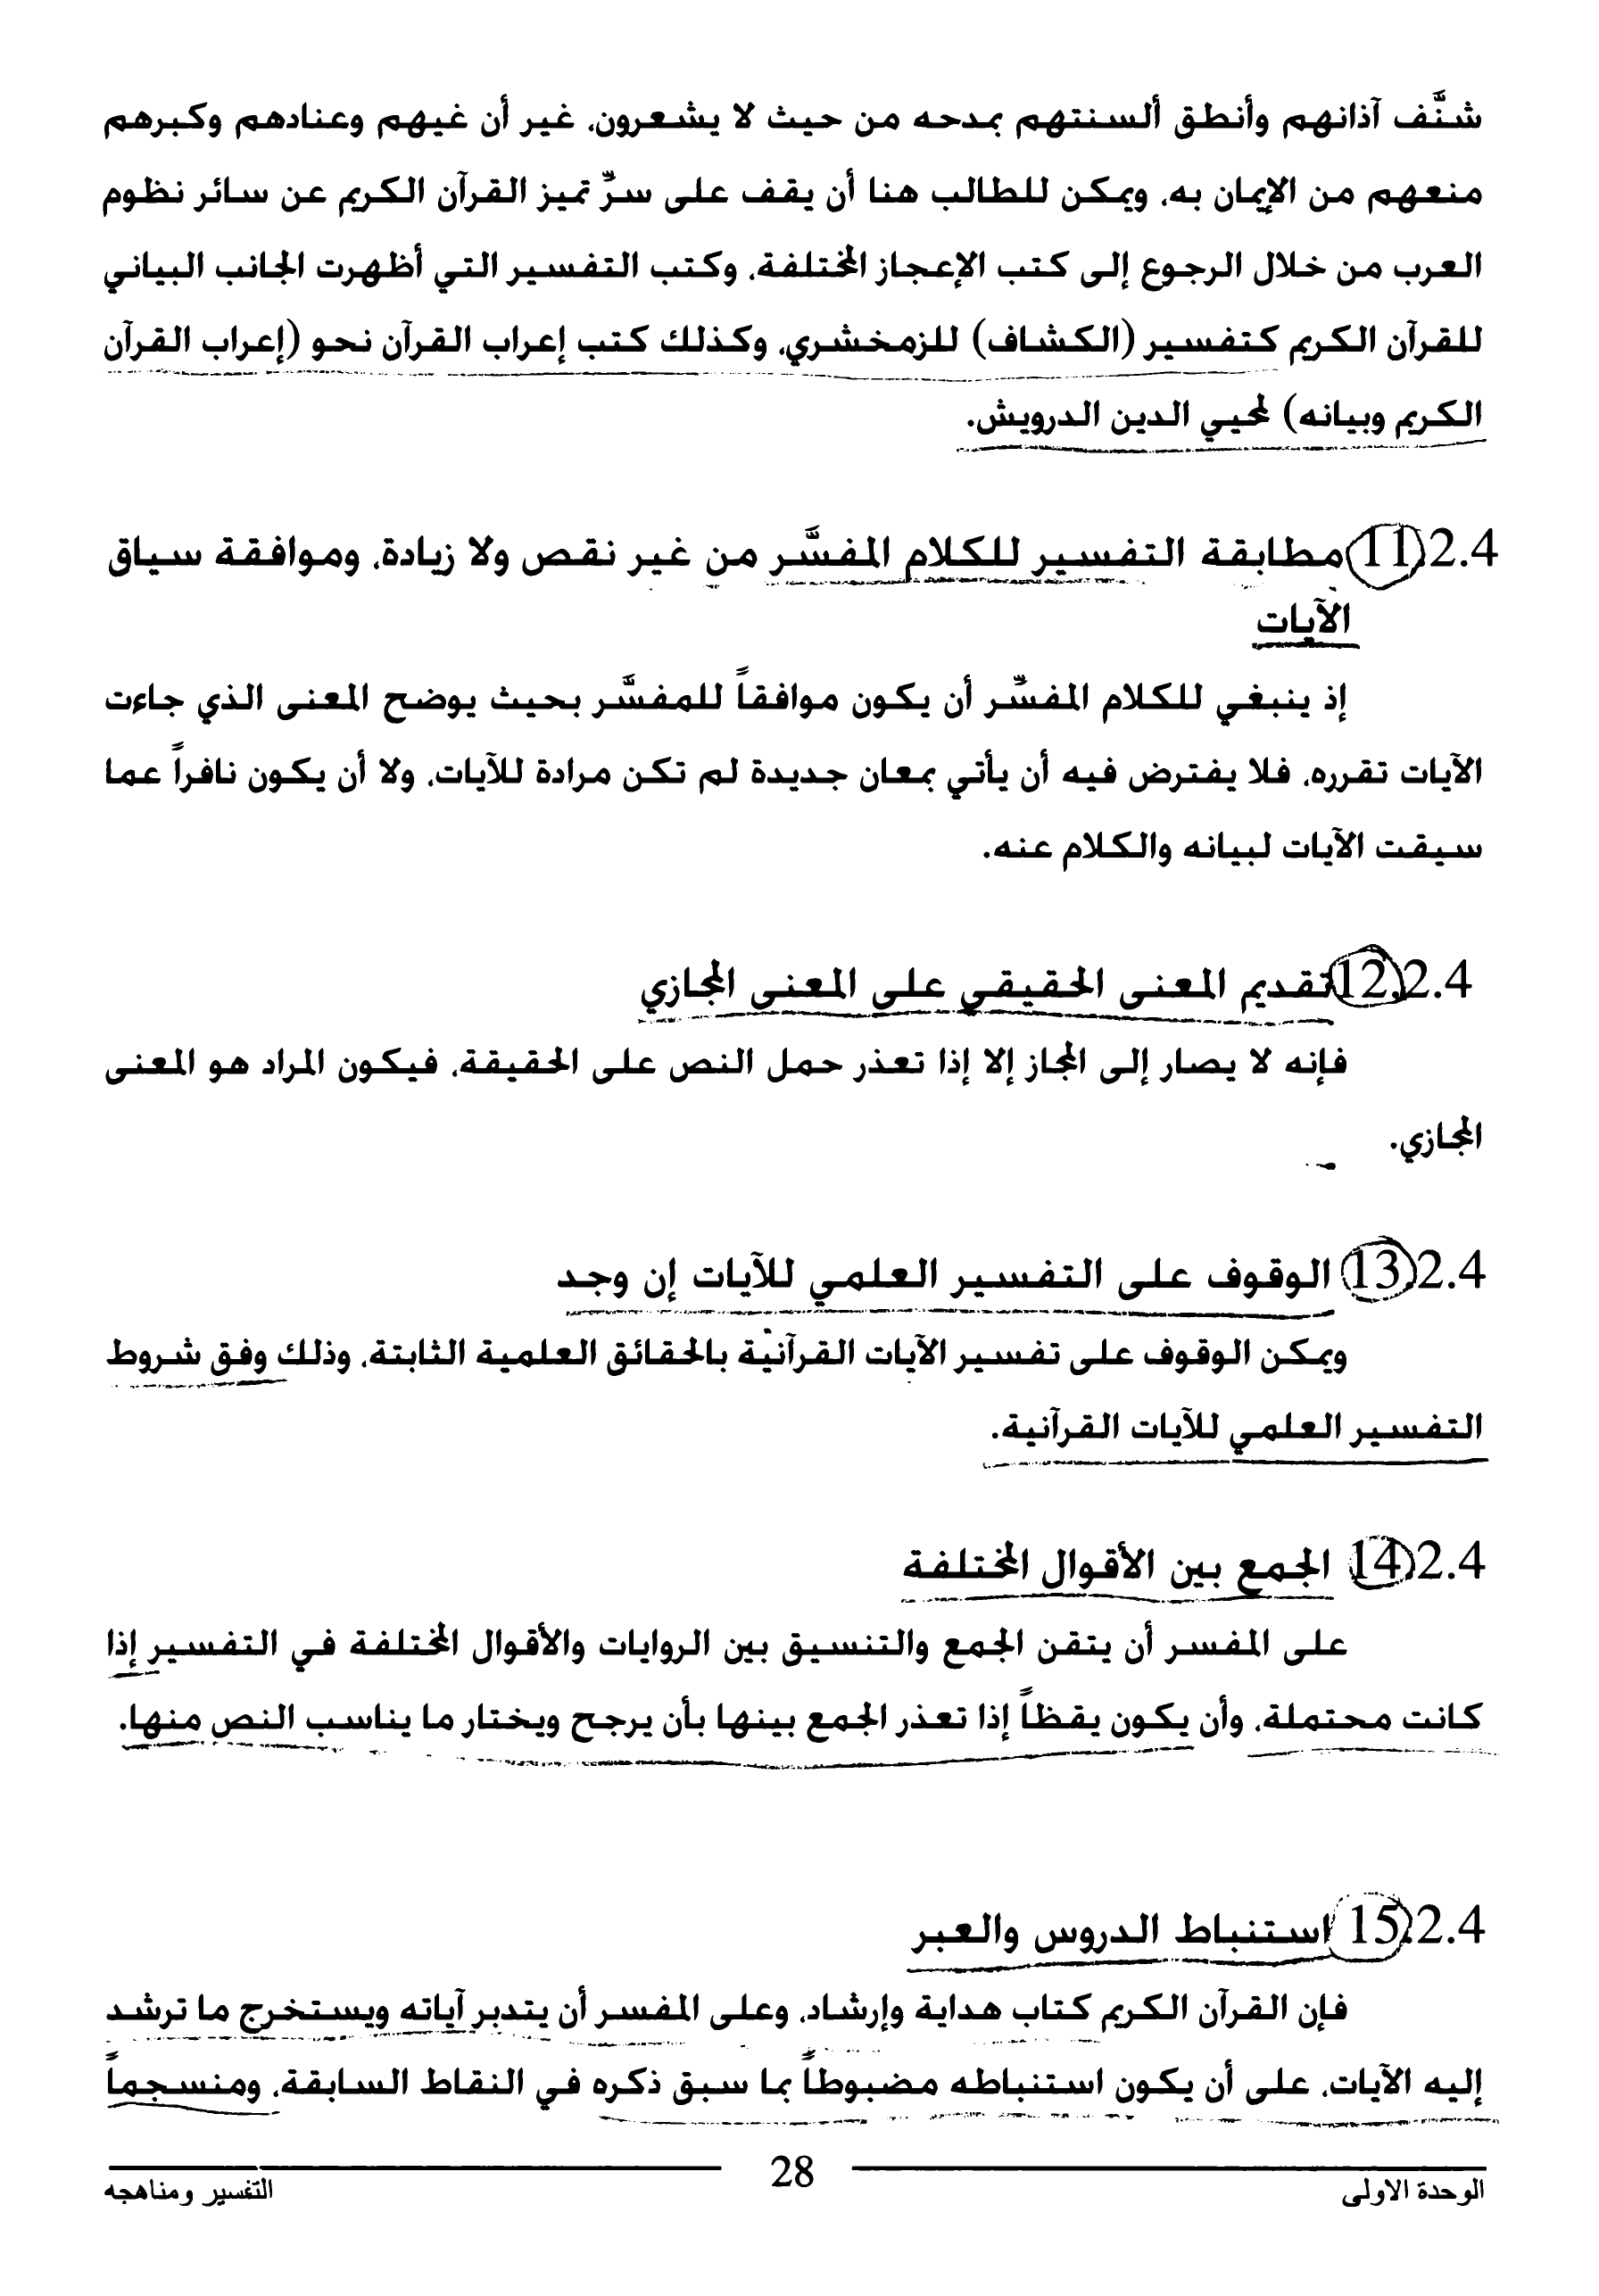 شنَّف آذانهم وأنطق ألسنتهم بمدحه من حيث لا يشعرون، غير أن غيهم وعنادهم وكبرهم
منعهم من الإيمان به، ويمكن للطالب هنا أن يقف على سرِّ تميز القرآن الكريم عن سائر نظوم
العرب من خلال الرجوع إلى كتب الإعجاز المختلفة، وكتب التفسير التي أظهرت الجانب البياني
للقرآن الكريم كتفسير (الكشاف) للزمخشري، وكذلك كتب إعراب القرآن نحو (إعراب القرآن
الكريم وبيانه) لمحيي الدين الدرويش.
11.2.4 مطابقة التفسير للكلام المفسَّر من غير نقص ولا زيادة، وموافقة سياق
الآيات
إذ ينبغي للكلام المفسِّر أن يكون موافقاً للمفسَّر بحيث يوضح المعنى الذي جاءت
الآيات تقرره، فلا يفترض فيه أن يأتي بمعان جديدة لم تكن مرادة للآيات، ولا أن يكون نافراً عما
سيقت الآيات لبيانه والكلام عنه.
12.2.4 تقديم المعنى الحقيقي على المعنى المجازي
فإنه لا يصار إلى المجاز إلا إذا تعذر حمل النص على الحقيقة، فيكون المراد هو المعنى
المجازي.
13.2.4 الوقوف على التفسير العلمي للآيات إن وجد
ويمكن الوقوف على تفسير الآيات القرآنية بالحقائق العلمية الثابتة، وذلك وفق شروط
التفسير العلمي للآيات القرآنية.
14.2.4 الجمع بين الأقوال المختلفة
على المفسر أن يتقن الجمع والتنسيق بين الروايات والأقوال المختلفة في التفسير إذا
كانت محتملة، وأن يكون يقظاً إذا تعذر الجمع بينها بأن يرجح ويختار ما يناسب النص منها.
15.2.4 استنباط الدروس والعبر
فإن القرآن الكريم كتاب هداية وإرشاد، وعلى المفسر أن يتدبر آياته ويستخرج ما ترشد
إليه الآيات، على أن يكون استنباطه مضبوطاً بما سبق ذكره في النقاط السابقة، ومنسجماً
الوحدة الاولى 28 التفسير ومناهجه